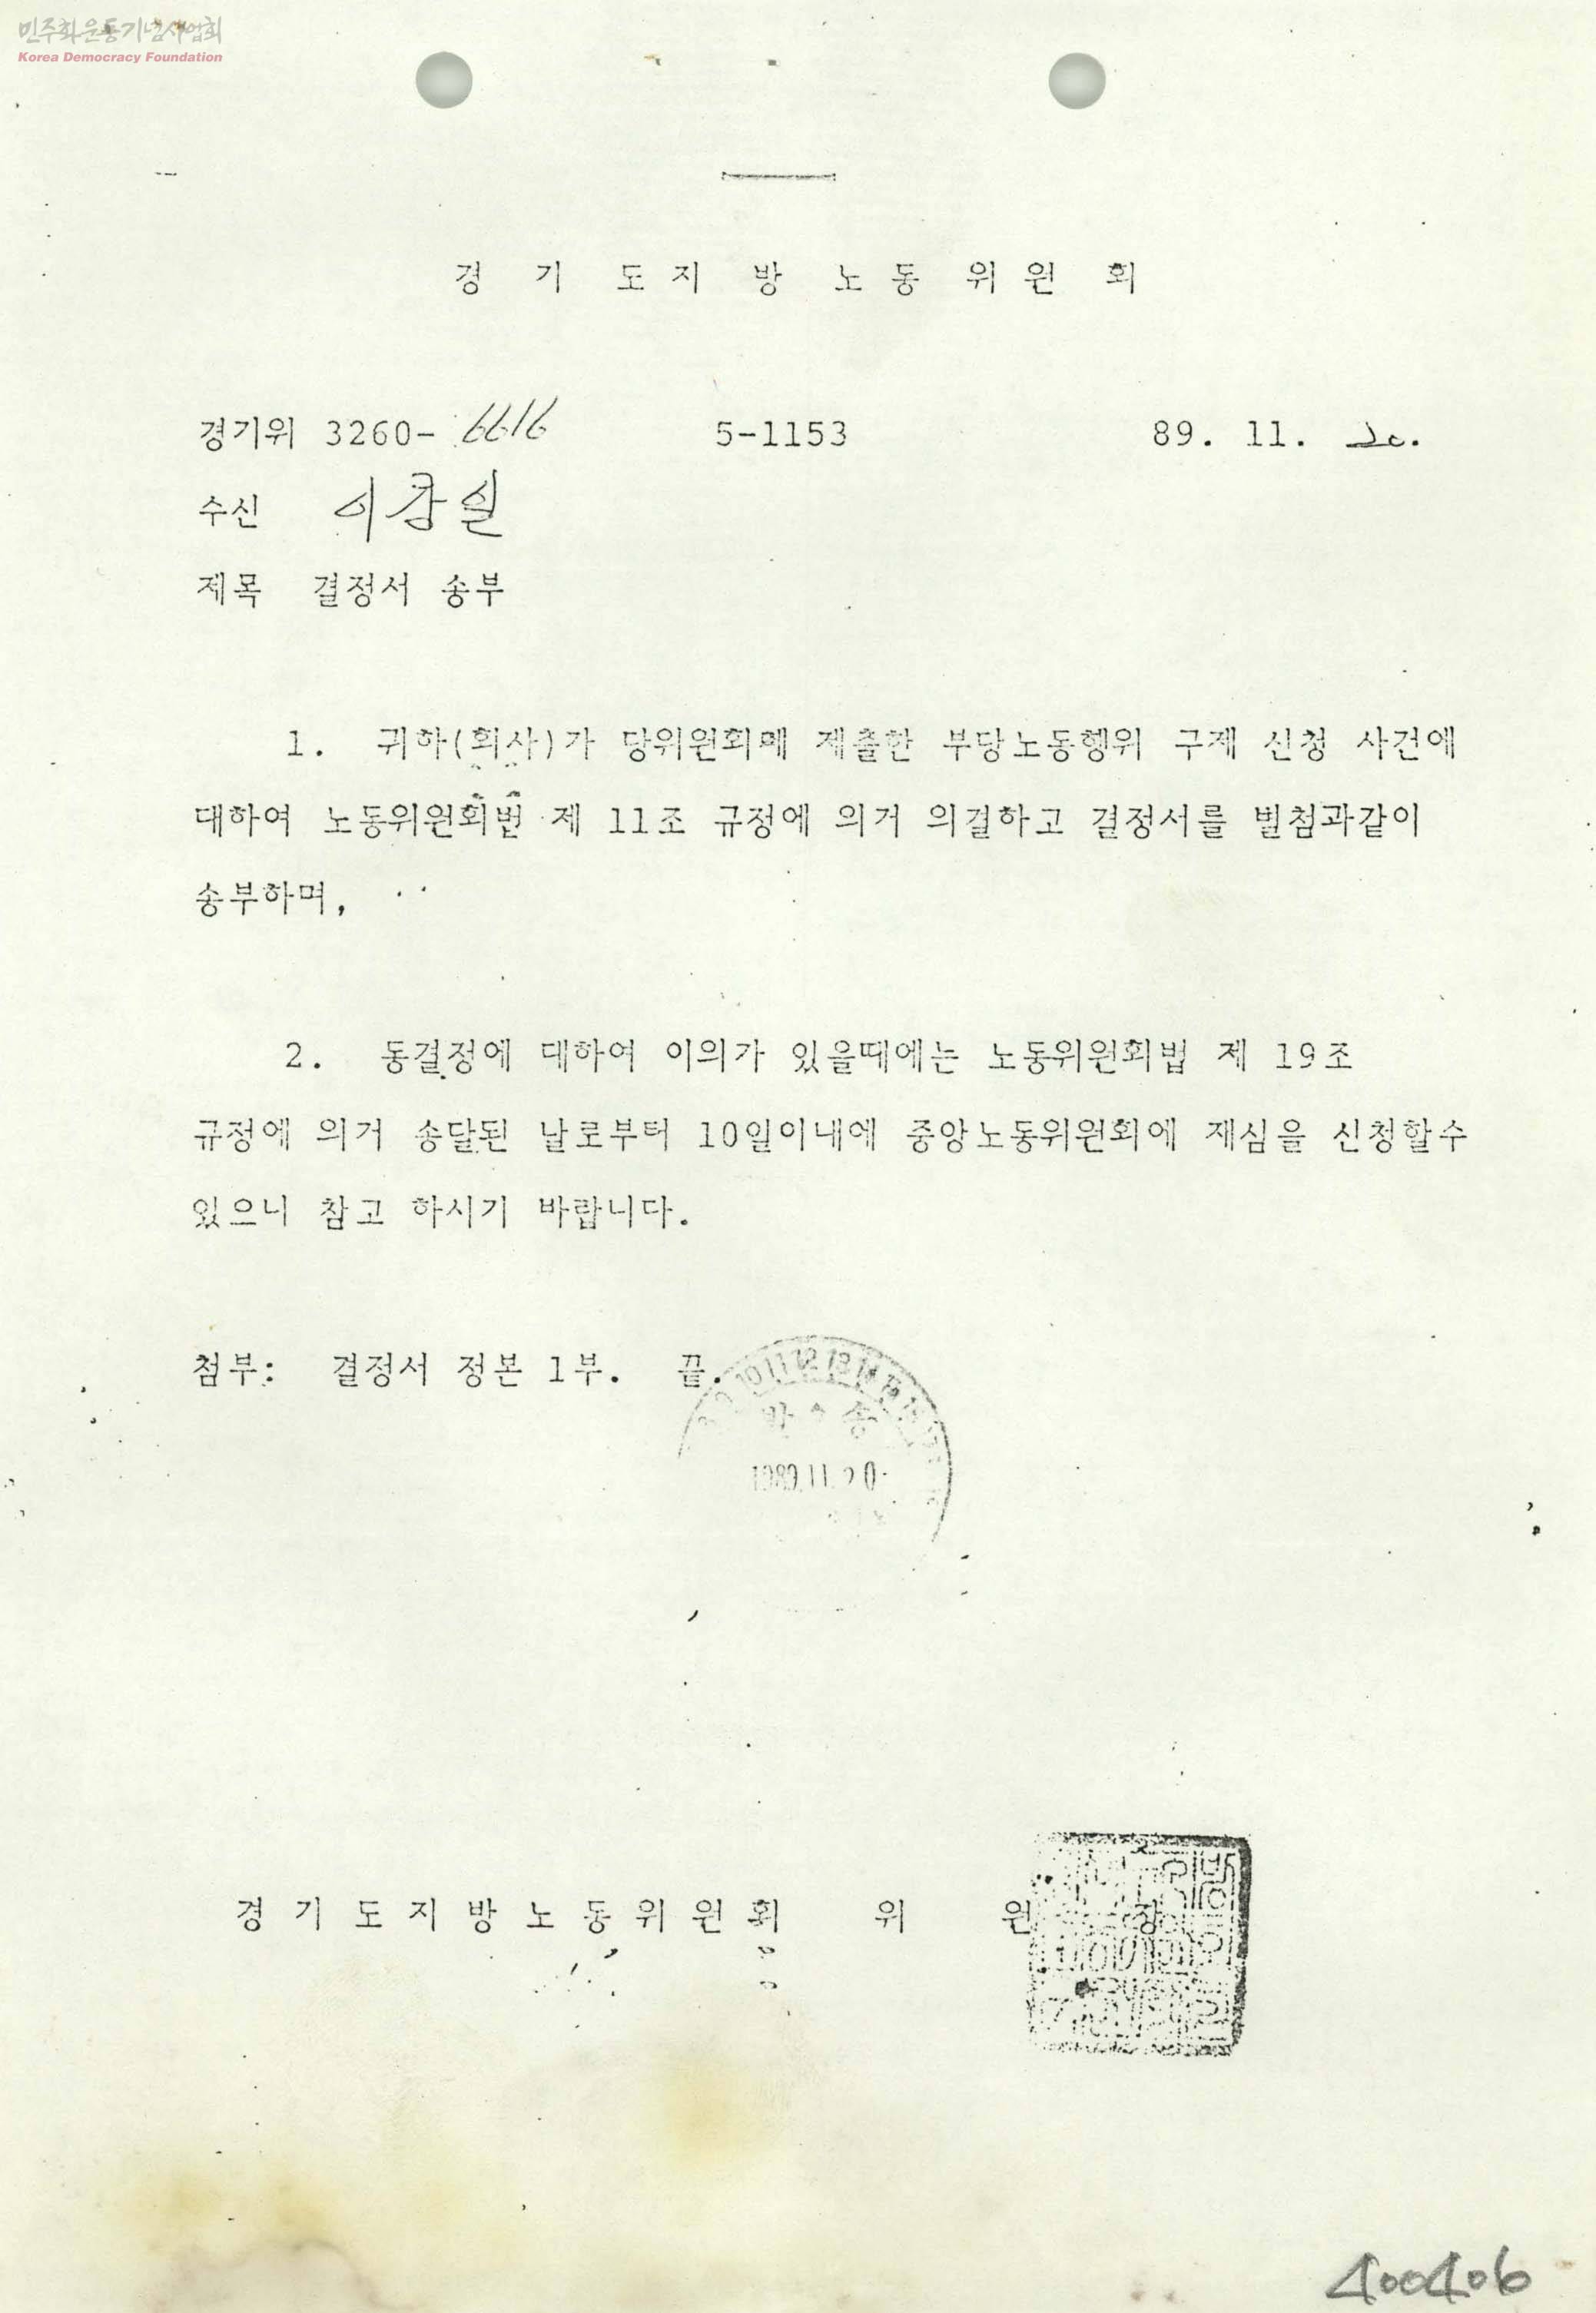 민주화운동기념사업회
Korea Democracy Foundation
경 기 도 지 방 노 동 위 원 회
경기위 3260- 6616 5-1153 89. 11. 20.
수신 이강일
제목 결정서 송부
1. 귀하(회사)가 당위원회에 제출한 부당노동행위 구제 신청 사건에
대하여 노동위원회법 제 11조 규정에 의거 의결하고 결정서를 별첨과같이
송부하며,
2. 동결정에 대하여 이의가 있을때에는 노동위원회법 제 19조
규정에 의거 송달된 날로부터 10일이내에 중앙노동위원회에 재심을 신청할수
있으니 참고 하시기 바랍니다.
첨부: 결정서 정본 1부. 끝.
10 11 12 13 14 15
발 송
1989.11.20.
경 기 도 지 방 노 동 위 원 회 위 원 장
400406